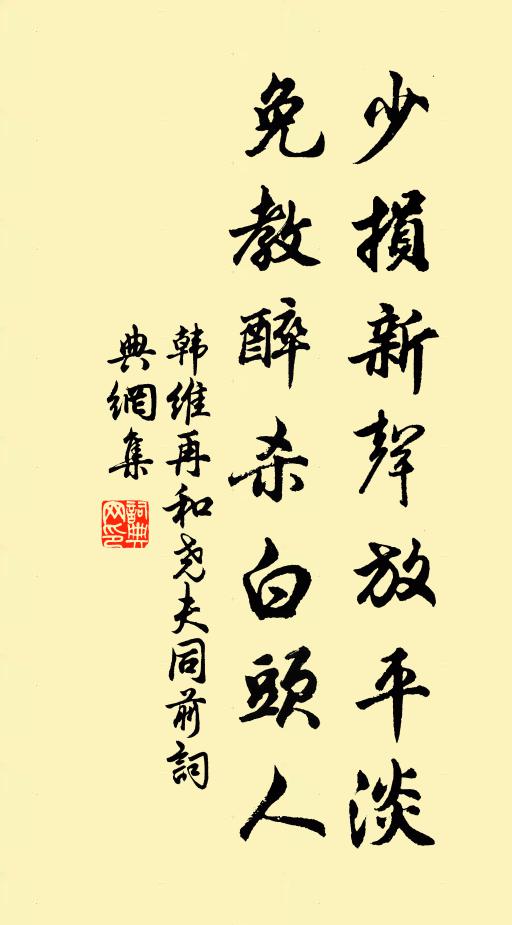 少損新聲放平淡
免教醉杀白頭人
韩維再和尧夫同前詞
典網集
詞典网印